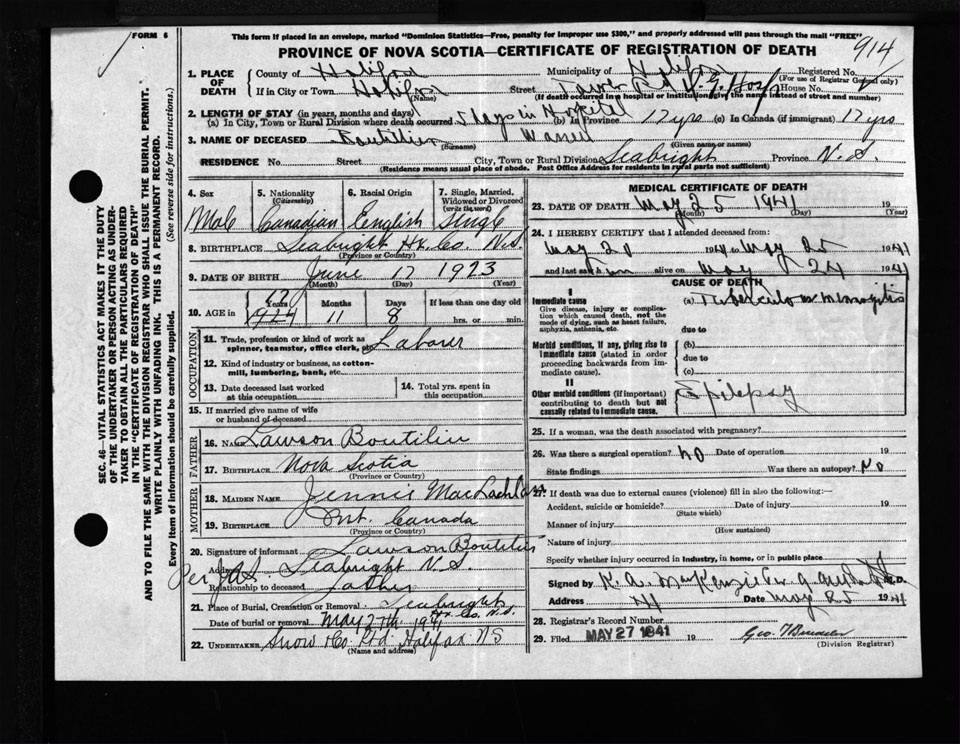 FORM 6
This form If placed in an envelope, marked "Dominion Statistics—Free, penalty for improper use $300," and properly addressed will pass through the mail "FREE"
PROVINCE OF NOVA SCOTIA—CERTIFICATE OF REGISTRATION OF DEATH
914
1. PLACE OF DEATH
County of Halifax Municipality of Halifax Registered No.
(For use of Registrar General only)
If in City or Town Halifax Street House No.
(Name) (If death occurred in a hospital or institution, give the name instead of street and number)
2. LENGTH OF STAY (in years, months and days)
(a) In City, Town or Rural Division where death occurred 5 days in Hospital (b) In Province 17 yrs (c) In Canada (if immigrant) 17 yrs
3. NAME OF DECEASED Boutilier
(Surname) (Given name or names)
RESIDENCE No. Street City, Town or Rural Division Seabright Province N.S.
(Residence means usual place of abode. Post Office Address for residents in rural parts not sufficient)
4. Sex
Male
5. Nationality (Citizenship)
Canadian
6. Racial Origin
English
7. Single, Married, Widowed or Divorced (write the word)
Single
8. BIRTHPLACE Seabright Hx. Co. N.S.
(Province or Country)
9. DATE OF BIRTH June 17 1923
(Month) (Day) (Year)
10. AGE in
Years Months Days If less than one day old
17 1924 11 8 hrs. or min.
OCCUPATION
11. Trade, profession or kind of work as spinner, teamster, office clerk, etc. Laborer
12. Kind of industry or business, as cotton-mill, lumbering, bank, etc.
13. Date deceased last worked at this occupation
14. Total yrs. spent in this occupation
15. If married give name of wife or husband of deceased
FATHER
16. NAME Lawson Boutilier
17. BIRTHPLACE Nova Scotia
(Province or Country)
MOTHER
18. MAIDEN NAME Jennie MacLachlan
19. BIRTHPLACE Ont. Canada
(Province or Country)
20. Signature of informant Lawson Boutilier
Address Seabright N.S.
Relationship to deceased father
21. Place of Burial, Cremation or Removal Seabright Hx. Co. N.S.
Date of burial or removal May 27th 1941
22. UNDERTAKER Snow Co Ltd. Halifax NS
(Name and address)
MEDICAL CERTIFICATE OF DEATH
23. DATE OF DEATH May 25 1941 19
(Month) (Day) (Year)
24. I HEREBY CERTIFY that I attended deceased from:
May 20 1941 to May 25 1941
and last saw him alive on May 24 1941
CAUSE OF DEATH
I
Immediate cause (a) Tuberculous meningitis
Give disease, injury or complication which caused death, not the mode of dying, such as heart failure, asphyxia, asthenia, etc.
due to
Morbid conditions, if any, giving rise to immediate cause (stated in order proceeding backwards from immediate cause). (b)
due to
(c)
II
Other morbid conditions (if important) contributing to death but not causally related to immediate cause. Epilepsy
25. If a woman, was the death associated with pregnancy?
26. Was there a surgical operation? No Date of operation 19
State findings Was there an autopsy? No
27. If death was due to external causes (violence) fill in also the following:—
Accident, suicide or homicide? Date of injury 19
(State which)
Manner of injury
(How sustained)
Nature of injury
Specify whether injury occurred in industry, in home, or in public place
Signed by K. A. MacKenzie
Address Date May 25 1941
28. Registrar's Record Number
29. Filed MAY 27 1941 19
(Division Registrar)
SEC. 46—VITAL STATISTICS ACT MAKES IT THE DUTY
OF THE UNDERTAKER OR PERSON ACTING AS UNDER-
TAKER TO OBTAIN ALL THE PARTICULARS REQUIRED
IN THE "CERTIFICATE OF REGISTRATION OF DEATH"
AND TO FILE THE SAME WITH THE DIVISION REGISTRAR WHO SHALL ISSUE THE BURIAL PERMIT.
WRITE PLAINLY WITH UNFADING INK. THIS IS A PERMANENT RECORD.
Every item of information should be carefully supplied. (See reverse side for instructions.)